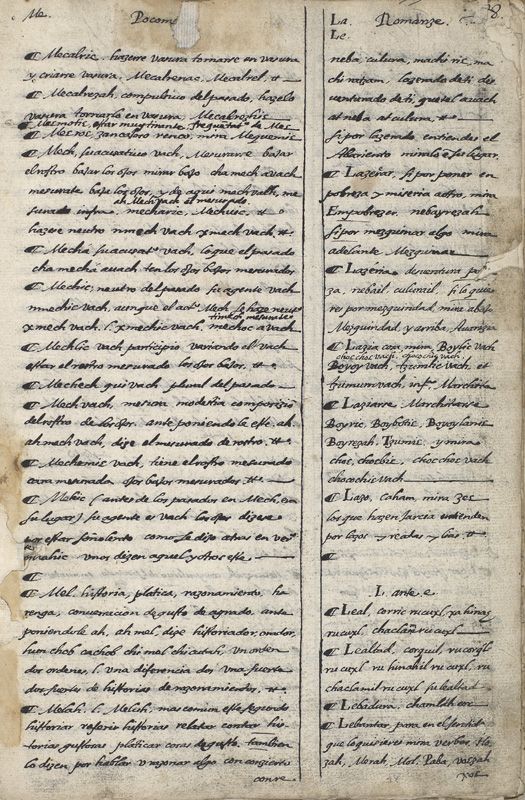 Me. Pocom
¶ Mecalric, hazerse vasura tornarse en vasura
y criarse vasura, Mecalrenac, Mecalrel, &
¶ Mecalrezah, compulsivo del pasado, hazelo
vasura tornarlo en vasura, Mecalrozhic
¶ Mech, suacusativo vach, Mesurarse baxar
el rostro baxar los ojos mirar baxo cha mech avach
mesurate baxa los ojos, y de aqui mech valh, me
ah Mech vach el mesurado.
surado infra, mecharic, Mechvic, &
hazese neutro nmech vach xmech vach, &
¶ Mecha suacusat. vach, lo que el pasado
cha mecha avach ten los ojos baxos mesurados
¶ Mechic, neutro del pasado su agente vach
nmechic vach, aunque el act. Mech se haze neut
xmech vach, l. xmechic vach, mechoc avach
¶ Mechlic vach participio variando el vach
estar el rostro mesurado los ojos baxos, &
¶ Mechech qui vach plural del pasado
¶ Mech vach, mesura modestia composizio
del rostro de los ojos. anteponiendole este ah,
ah mech vach, dize el mesurado de rostro, &
¶ Mechemic vach, tiene el rostro mesurado
cara mesurada ojos baxos mesurados &
su lugar) su agente es vach los ojos dizese
por estar soñoliento como se dijo atras en
unos dizen aquel y otros este
¶
¶ Mel, historia, platica, razonamiento, ha
renga, conversacion de gusto de agrado, ante
poniendole ah, ah mel, dize historiador, orador,
hun chob cachob chi mel chi cutuh, un orden
dos ordenes, l. una diferencia dos una suerte
dos suertes de historias de razonamientos, &
¶ Melah, l. Melch, mas comun este segundo
historiar referir historias relatar contar his-
torias gustosas, platicar cosas de gusto, tambien
lo dizen por hablar y razonar algo con concierto
La. Romanze. 38.
Le.
neba, culura, machi ric, ma
chi natzam, lazerado de ti des
venturado de ti, que tel avach
at neba at culura, &
si por lazerado entiendes el
Abariento miralo e su lugar.
¶ Lazerar, si por poner en
pobreza y miseria a otro, mira
Empobrezer, nebayrezah
si por mezquinar algo mira
adelante Mezquinar
¶ Lazeria desventura po-
za, rebail, culurail, si lo quie
res por mezquindad, mira abajo
Mezquindad y arriba Avarizia
¶ Lazia cosa, mira, Boyhic vach
choc choc vach
Boyoy vach, tzumlic vach, et
tzumum vach, inf. Marchita
¶ Laziarse, Marchitarse
Boyric, Boybotic, Boyoylaric
Boyrezah, Tzumic, y mira
choc, chocbic, choc choc vach
¶ Lazo, caham, mira
los que hazen Jarcia entienden
por lazos y redas y lias, &
¶
L. ante. e
¶ Leal, torric rucuxl, xa hinag
rucuxl,
¶ Lealtad, corquil, ru corqil
rucuxl ru hinahil rucuxl, ru
chaclamil rucuxl su lealtad
¶ Lebadura,
¶ Lebantar, para en el sentido
que lo quisieres mira verbos,
zah, Morah, Mol, Paba,